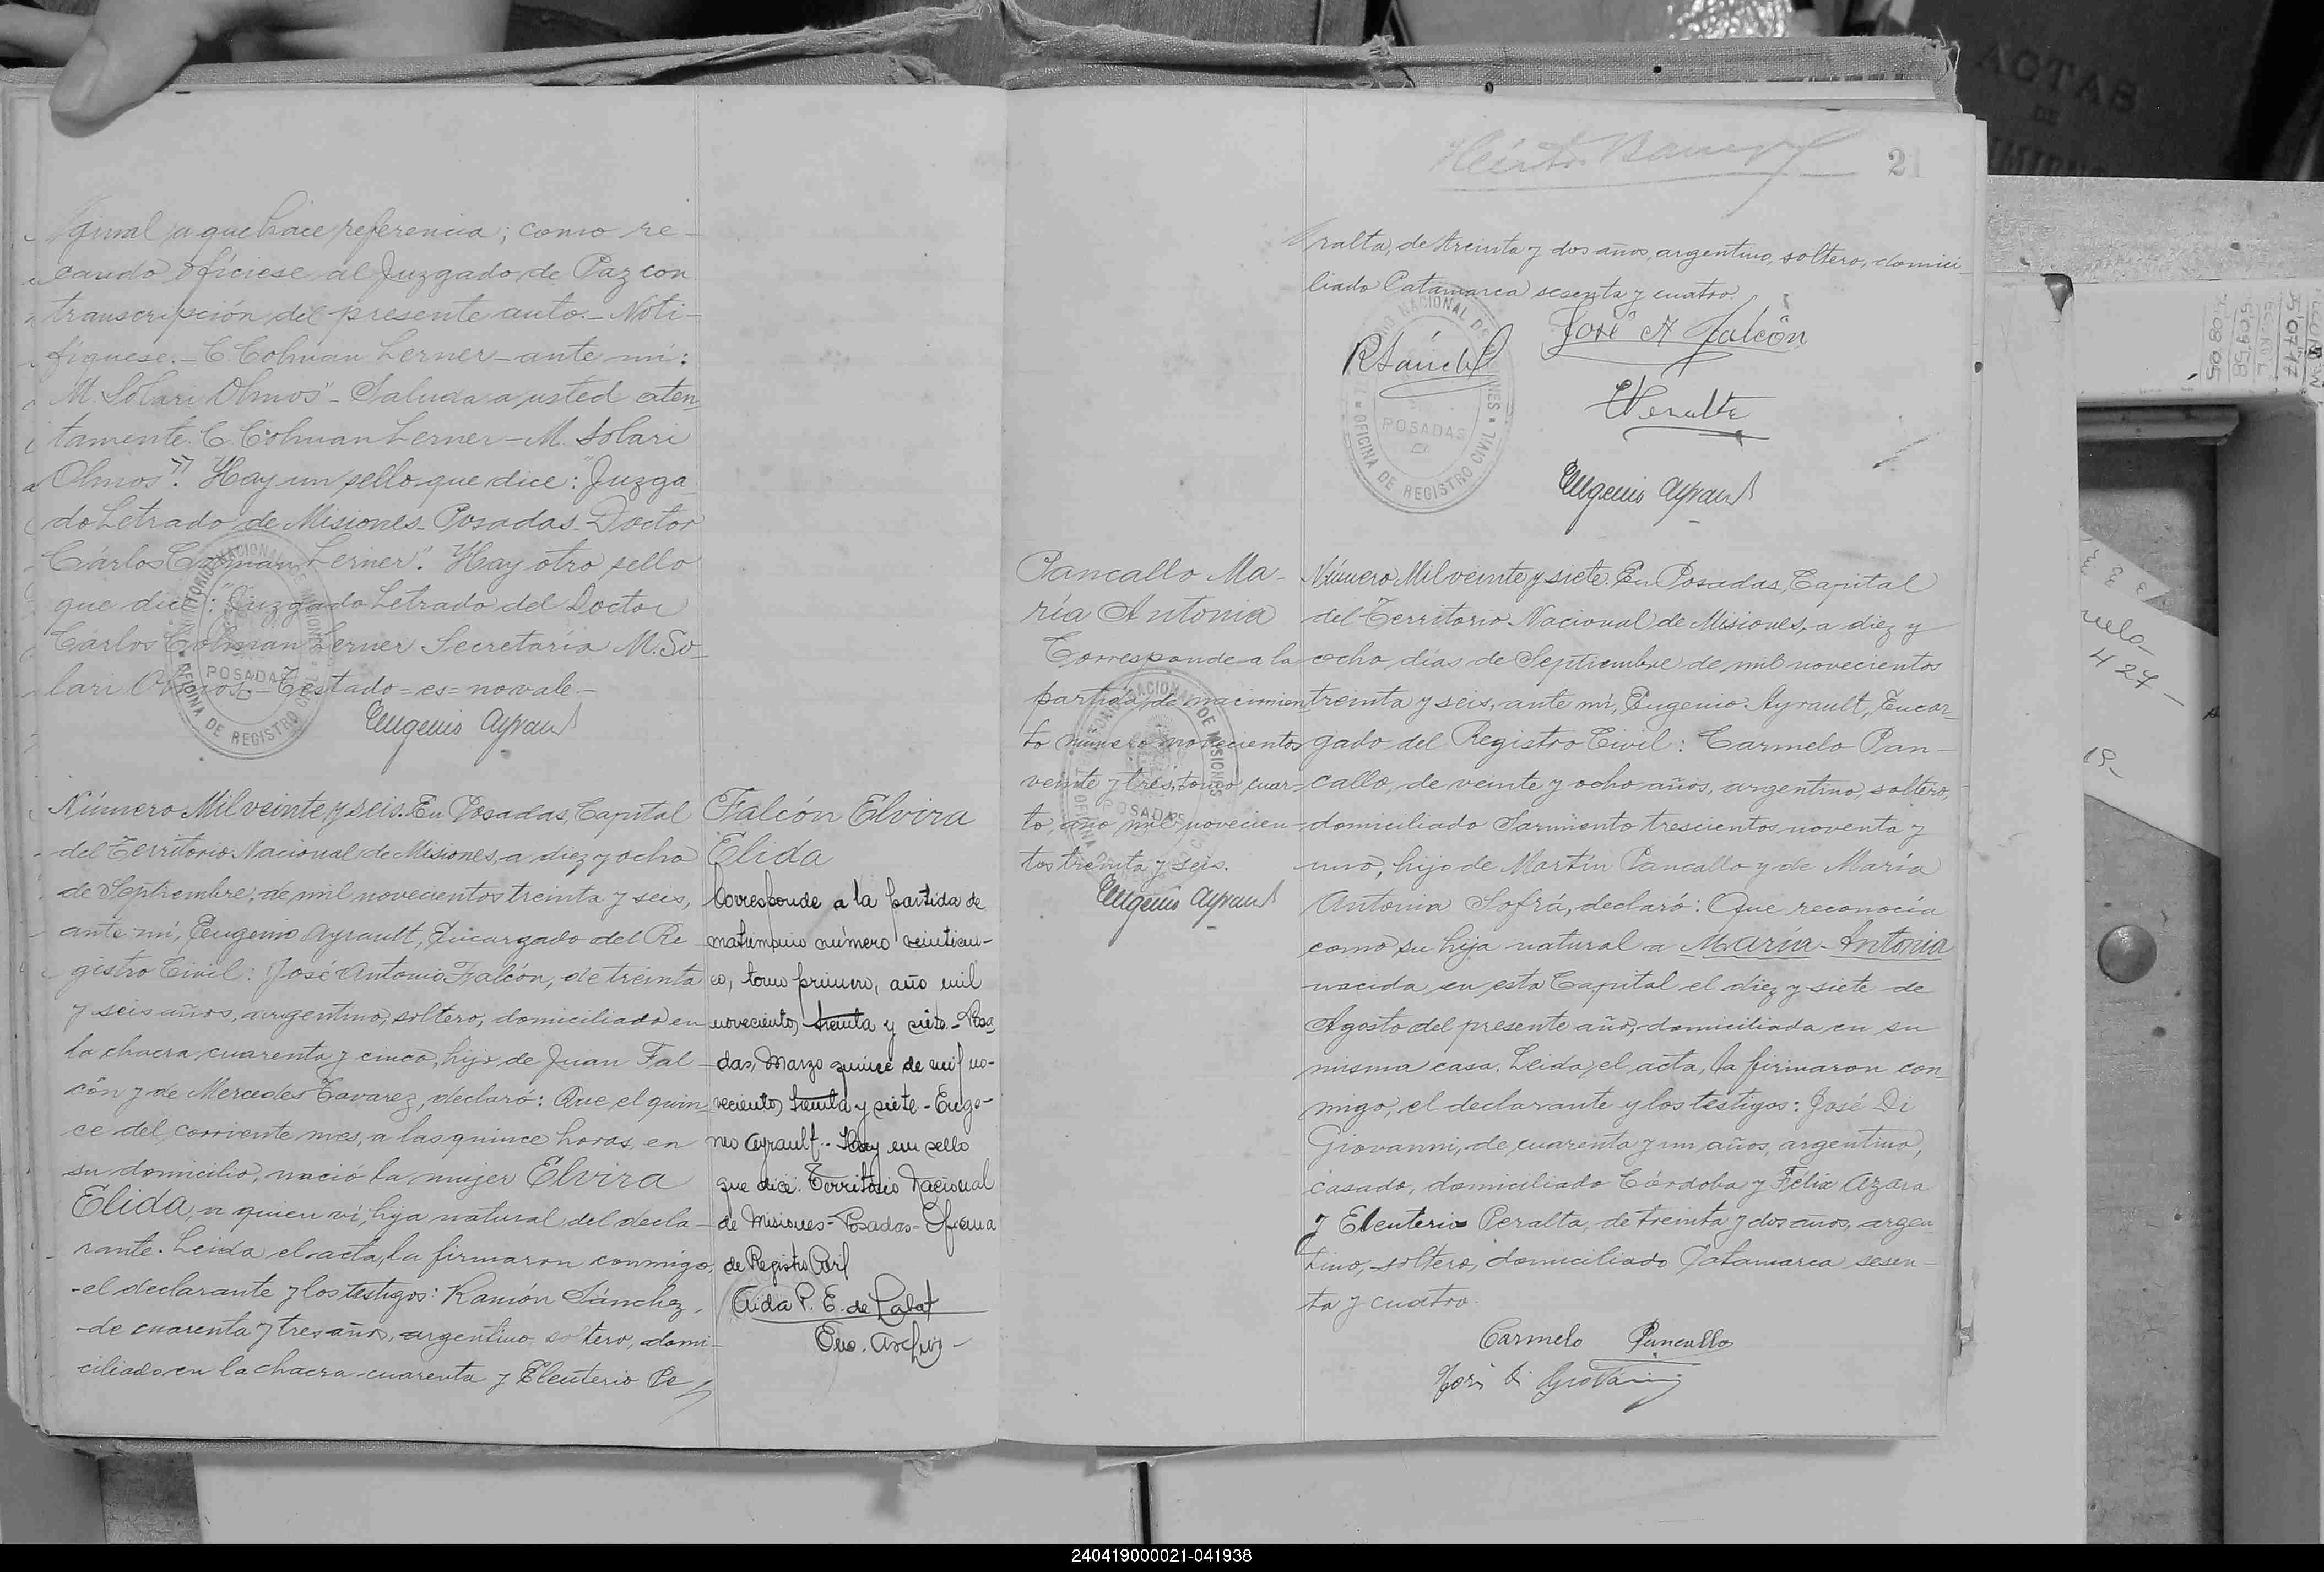 ginal a que hace referencia; como re-
caudo ofíciese al Juzgado de Paz con
transcripción del presente auto.- Noti-
fíquese.- C. Colman Lerner - ante mí:
M. Solari Olmos" - Saluda a usted aten
tamente. C. Colman Lerner - M. Solari
Olmos". Hay un sello que dice: "Juzga
do Letrado de Misiones - Posadas - Doctor
Cárlos Colman Lerner". Hay otro sello
que dice: "Juzgado Letrado del Doctor
Cárlos Colman Lerner Secretaría M. So-
lari Olmos.- Testado = es = no vale.-
Eugenio Ayrault
TERRITORIO NACIONAL DE MISIONES
POSADAS
OFICINA DE REGISTRO CIVIL
Número Mil veinte y seis. En Posadas, Capital
del Territorio Nacional de Misiones, a diez y ocho
de Septiembre, de mil novecientos treinta y seis,
ante mí, Eugenio Ayrault, Encargado del Re
gistro Civil: José Antonio Falcón, de treinta
y seis años, argentino, soltero, domiciliado en
la chacra cuarenta y cinco, hijo de Juan Fal-
cón y de Mercedes Tavarez, declaró: Que el quin
ce del corriente mes, a las quince horas, en
su domicilio, nació la mujer Elvira
Elida, a quien vi, hija natural del decla-
rante. Leida el acta, la firmaron conmigo,
el declarante y los testigos: Ramón Sánchez,
de cuarenta y tres años, argentino soltero, domi-
ciliado en la chacra cuarenta y Eleuterio Pe
Falcón Elvira
Elida
Corresponde a la partida de
matrimonio número veinticin-
co, tomo primero, año mil
novecientos treinta y siete.- Posa
das, Marzo quince de mil no-
vecientos treinta y siete - Euge-
nio Ayrault.- Hay un sello
que dice: Territorio Nacional
de Misiones - Posadas - Oficina
de Registro Civil
Aida P. E. de
Archivo
21
ralta, de treinta y dos años, argentino, soltero, domici
liado Catamarca sesenta y cuatro.
José A Falcón
RSánchez
EPeralta
Eugenio Ayrault
TERRITORIO NACIONAL DE MISIONES
POSADAS
OFICINA DE REGISTRO CIVIL
Pancallo Ma-
ría Antonia
Corresponde a la
partida de nacimien
to número novecientos
veinte y tres, tomo cuar-
to, año mil novecien-
tos treinta y seis.
Eugenio Ayrault
TERRITORIO NACIONAL DE MISIONES
POSADAS
Número Mil veinte y siete. En Posadas, Capital
del Territorio Nacional de Misiones, a diez y
ocho días de Septiembre de mil novecientos
treinta y seis, ante mí, Eugenio Ayrault, Encar-
gado del Registro Civil: Carmelo Pan-
callo, de veinte y ocho años, argentino, soltero,
domiciliado Sarmiento trescientos noventa y
uno, hijo de Martín Pancallo y de María
Antonia Sofrá, declaró: Que reconocía
como su hija natural a María Antonia
nacida en esta Capital el diez y siete de
Agosto del presente año, domiciliada en su
misma casa. Leida el acta, la firmaron con-
migo, el declarante y los testigos: José Di
Giovanni, de cuarenta y un años, argentino,
casado, domiciliado Córdoba y Félix Azara
y Eleuterio Peralta, de treinta y dos años, argen
tino, soltero, domiciliado Catamarca sesen-
ta y cuatro.
Carmelo Pancallo
José Di Giovanni
ACTAS
DE
427
240419000021-041938